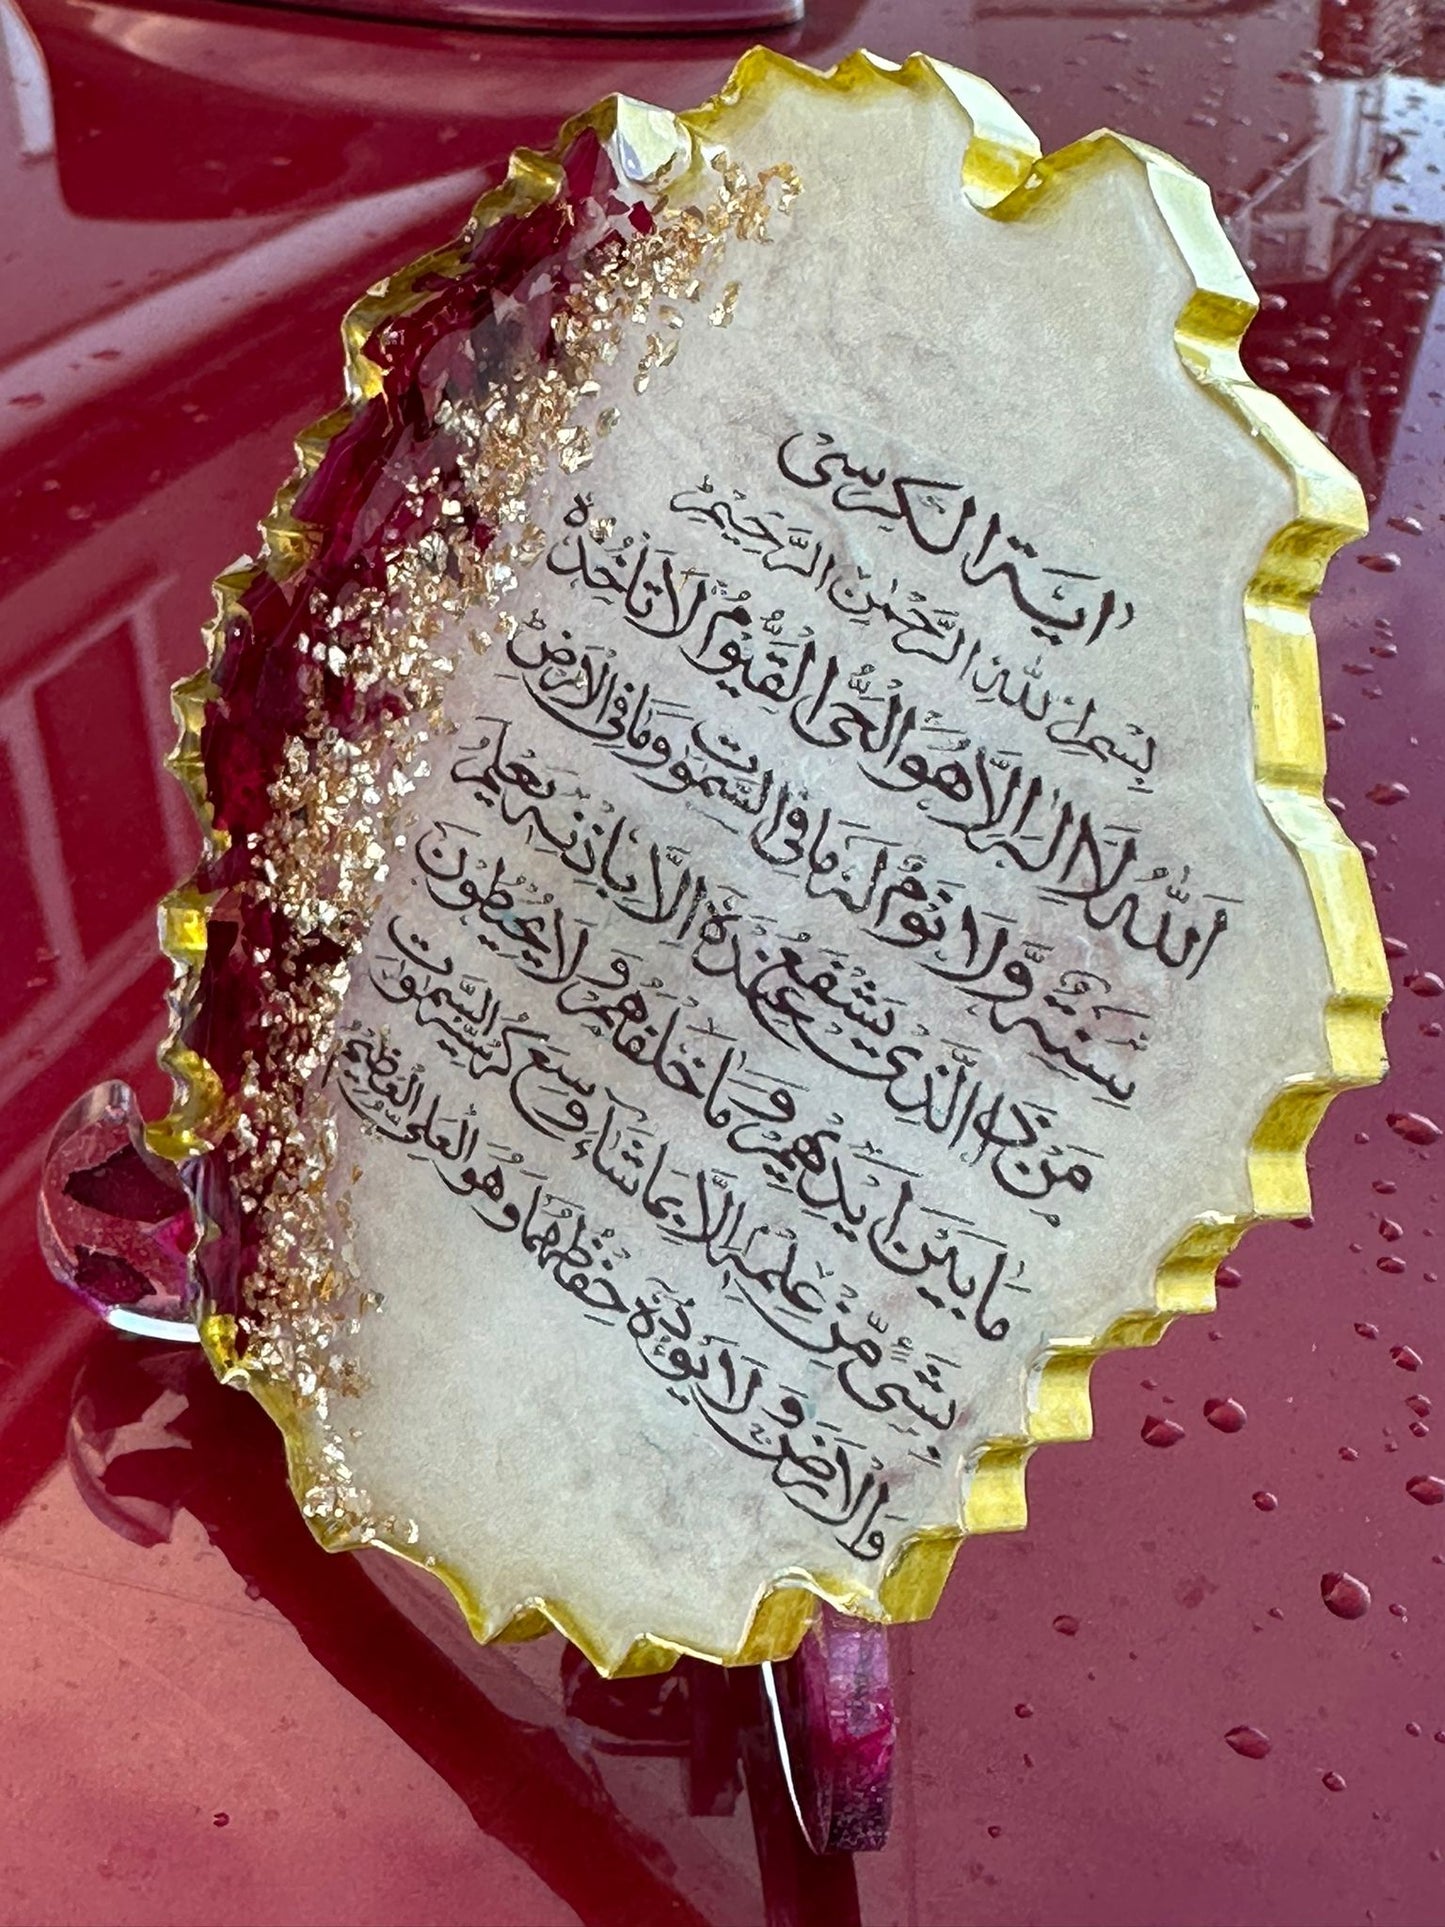 اٰيَةُ الْكُرسِى
بِسْمِ اللّٰهِ الرَّحْمٰنِ الرَّحِيْمِ
اَللّٰهُ لَا اِلٰهَ اِلَّا هُوَ الْحَىُّ الْقَيُّوْمُ لَا تَاْخُذُهٗ
سِنَةٌ وَّلَا نَوْمٌ لَهٗ مَا فِى السَّمٰوٰتِ وَمَا فِى الْاَرْضِ
مَنْ ذَا الَّذِىْ يَشْفَعُ عِنْدَهٗ اِلَّا بِاِذْنِهٖ يَعْلَمُ
مَا بَيْنَ اَيْدِيْهِمْ وَمَا خَلْفَهُمْ وَلَا يُحِيْطُوْنَ
بِشَىْءٍ مِّنْ عِلْمِهٖ اِلَّا بِمَا شَآءَ وَسِعَ كُرْسِيُّهُ السَّمٰوٰتِ
وَالْاَرْضَ وَلَا يَئُوْدُهٗ حِفْظُهُمَا وَهُوَ الْعَلِىُّ الْعَظِيْمُ